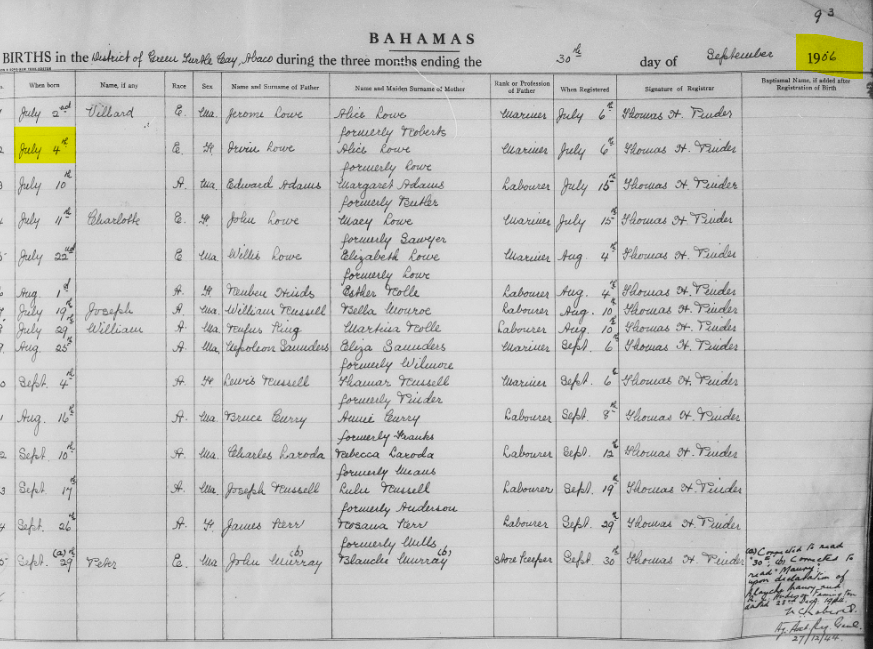 93
BAHAMAS
BIRTHS in the District of Green Turtle Cay, Abaco during the three months ending the 30th day of September 1906
When born Name, if any Race Sex Name and Surname of Father Name and Maiden Surname of Mother Rank or Profession of Father When Registered Signature of Registrar Baptismal Name, if added after Registration of Birth
July 2nd Willard E. Ma. Jerome Lowe Alice Lowe Mariner July 6th Thomas H. Pinder
formerly Roberts
2 July 4th E. F. Irvin Lowe Alice Lowe Mariner July 6th Thomas H. Pinder
formerly Lowe
3 July 10th A. Ma. Edward Adams Margaret Adams Labourer July 15th Thomas H. Pinder
formerly Butler
4 July 11th Charlotte E. F. John Lowe Macy Lowe Mariner July 15th Thomas H. Pinder
formerly Sawyer
5 July 22nd E Ma. Willis Lowe Elizabeth Lowe Mariner Aug. 4th Thomas H. Pinder
formerly Lowe
6 Aug. 1st A. F. Reuben Hinds Esther Rolle Labourer Aug. 4th Thomas H. Pinder
July 19th Joseph A. Ma. William Russell Bella Monroe Labourer Aug. 10th Thomas H. Pinder
July 29th William A. Ma. Rufus King Martina Rolle Labourer Aug. 10th Thomas H. Pinder
9 Aug. 25th A. Ma. Napoleon Saunders Eliza Saunders Mariner Sept. 6th Thomas H. Pinder
formerly Wilmore
0 Sept. 4th A. F. Lewis Russell Thamar Russell Mariner Sept. 6th Thomas H. Pinder
formerly Pinder
1 Aug. 16th A. Ma. Bruce Curry Annie Curry Labourer Sept. 8th Thomas H. Pinder
formerly Franks
2 Sept. 10th A. Ma. Charles Laroda Rebecca Laroda Labourer Sept. 12th Thomas H. Pinder
formerly Means
3 Sept. 17th A. Ma. Joseph Russell Lulu Russell Labourer Sept. 19th Thomas H. Pinder
formerly Anderson
4 Sept. 26th A. F. James Kerr Rosana Kerr Labourer Sept. 29th Thomas H. Pinder
formerly Mills
5 Sept. (a) 29th Peter E. Ma. John Murray (b) Blanche Murray (b) Store Keeper Sept. 30th Thomas H. Pinder
(a) Corrected to read
"30" (b) Corrected to
read "Maury"
upon declaration of
Blanche Maury and
dated 22nd Dec. 1944.
Ag. Asst. Reg. Genl.
27/12/44.